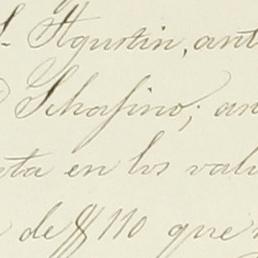 S. Agustin, ant
Schafino; an
ta en los valu
de $110 que